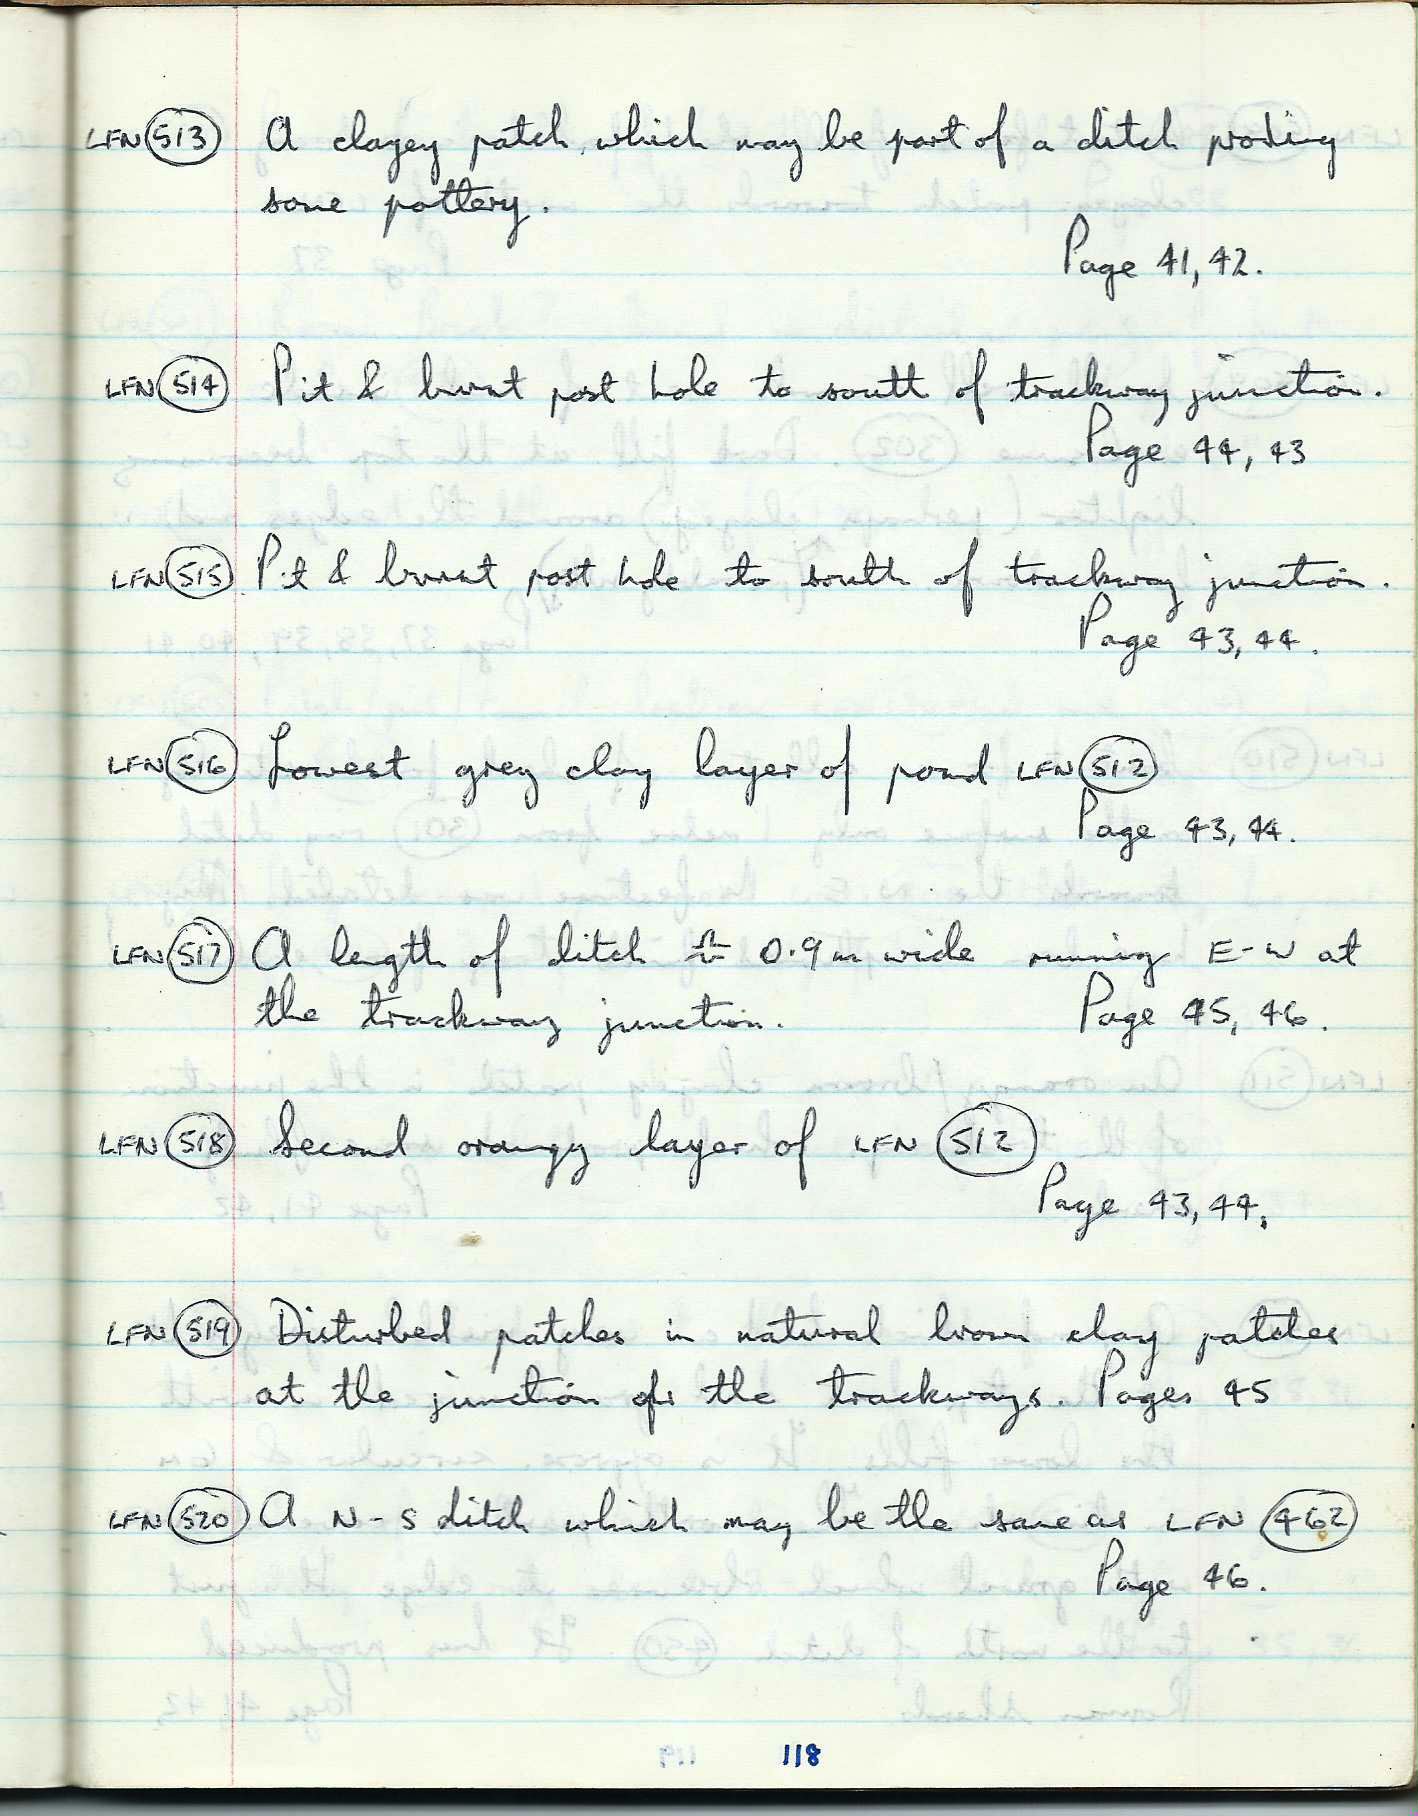 LFN 513 A clayey patch which may be part of a ditch proding
some pottery.
Page 41, 42.
LFN 514 Pit & burnt post hole to south of trackway junction.
Page 44, 43
LFN 515 Pit & burnt post hole to south of trackway junction.
Page 43, 44.
LFN 516 Lowest grey clay layer of pond LFN 512
Page 43, 44.
LFN 517 A length of ditch 0.9m wide running E-W at
the trackway junction. Page 45, 46.
LFN 518 Second orangy layer of LFN 512
Page 43, 44.
LFN 519 Disturbed patches in natural brown clay patches
at the junction of the trackways. Pages 45
LFN 520 A N-S ditch which may be the same as LFN 462
Page 46.
118